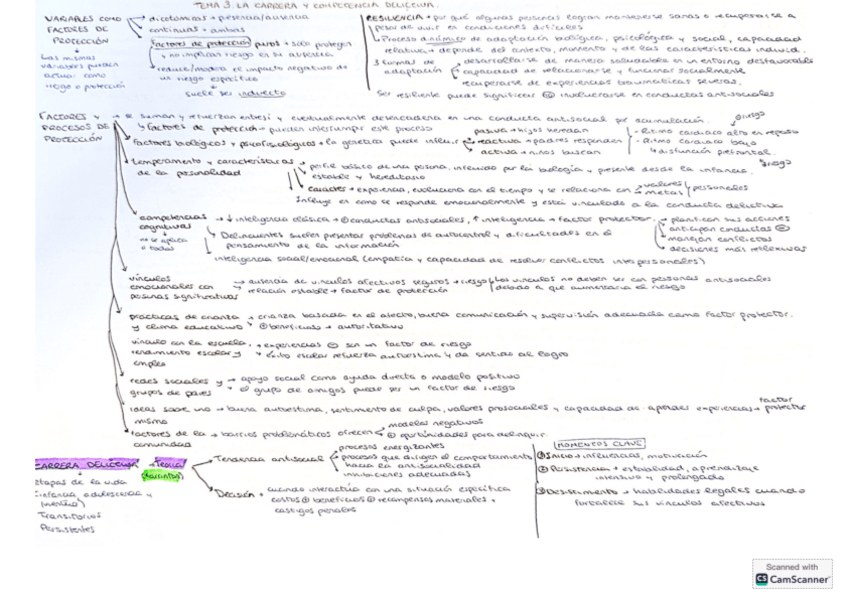 TEMA 3. LA CARRERA Y COMPETENCIA DELICTIVA.
VARIABLES COMO FACTORES DE PROTECCIÓN
Las mismas variables pueden actuar como riesgo o protección
→ dicotómicas → presencia/ausencia
continuas → ambas
Factores de protección puros → solo protegen y no implican riesgo en su ausencia
→ reduce/modera el impacto negativo de un riesgo específico
suele ser indirecto
RESILIENCIA → por qué algunas personas logran mantenerse sanas o recuperarse a
pesar de vivir en condiciones difíciles
Proceso dinámico de adaptación biológica, psicológica y social, capacidad
relativa → depende del contexto, momento y de las características individ.
3 formas de adaptación
desarrollarse de manera saludable en un entorno desfavorable
capacidad de relacionarse y funcionar socialmente
recuperarse de experiencias traumáticas severas.
Ser resiliente puede significar involucrarse en conductas antisociales
FACTORES Y PROCESOS DE PROTECCIÓN
→ se suman y refuerzan entre sí y eventualmente desencadena en una conducta antisocial por acumulación.
y factores de protección → pueden interrumpir este proceso
factores biológicos y psicofisiológicos → la genética puede influir
pasiva → hijos heredan
reactiva → padres responden
activa → niños buscan
riesgo
- Ritmo cardiaco alto en reposo
- Ritmo cardiaco bajo
↳ disfunción prefrontal.
riesgo
temperamento y características de la personalidad
→ perfil básico de una persona, influido por la biología y presente desde la infancia.
estable y hereditario
carácter → experiencia, evoluciona con el tiempo y se relaciona con valores / metas personales
Influye en como se responde emocionalmente y está vinculado a la conducta delictiva
competencias cognitivas
no se aplica a todos
→ ↓ inteligencia clásica → conductas antisociales, ↑ inteligencia → factor protector.
→ planifican sus acciones
anticipan conductas
manejan conflictos
decisiones más reflexivas
Delincuentes suelen presentar problemas de autocontrol y dificultades en el
pensamiento de la información
inteligencia social/emocional (empatía y capacidad de resolver conflictos interpersonales)
vínculos emocionales con personas significativas
→ ausencia de vínculos afectivos seguros → riesgo
relación estable → factor de protección
Los vínculos no deben ser con personas antisociales
debido a que aumentaría el riesgo
prácticas de crianza y clima educativo
→ crianza basada en el afecto, buena comunicación y supervisión adecuada como factor protector.
beneficioso → autoritativo
vínculo con la escuela, rendimiento escolar y empleo
→ experiencias ⊖ son un factor de riesgo
→ éxito escolar refuerza autoestima y da sentido al logro
redes sociales y grupos de pares
→ apoyo social como ayuda directa o modelo positivo
→ el grupo de amigos puede ser un factor de riesgo
ideas sobre uno mismo
→ buena autoestima, sentimiento de culpa, valores prosociales y capacidad de aprender experiencias → factor protector
factores de la comunidad
→ barrios problemáticos ofrecen
modelos negativos
oportunidades para delinquir
CARRERA DELICTIVA → Teoría
(Farrington)
etapas de la vida
(infancia, adolescencia y
Transitorios
Persistentes
→ Tendencia antisocial
procesos energizantes
procesos que dirigen el comportamiento hacia la antisocialidad
inhibiciones adecuadas
Decisión → cuando interactúa con una situación específica
costos beneficios recompensas materiales
castigos penales
MOMENTOS CLAVE
① Inicio → influencias, motivación
② Persistencia → estabilidad, aprendizaje
intensivo y prolongado
③ Desistimiento → habilidades legales cuando
fortalece sus vínculos afectivos
Scanned with
CS CamScanner